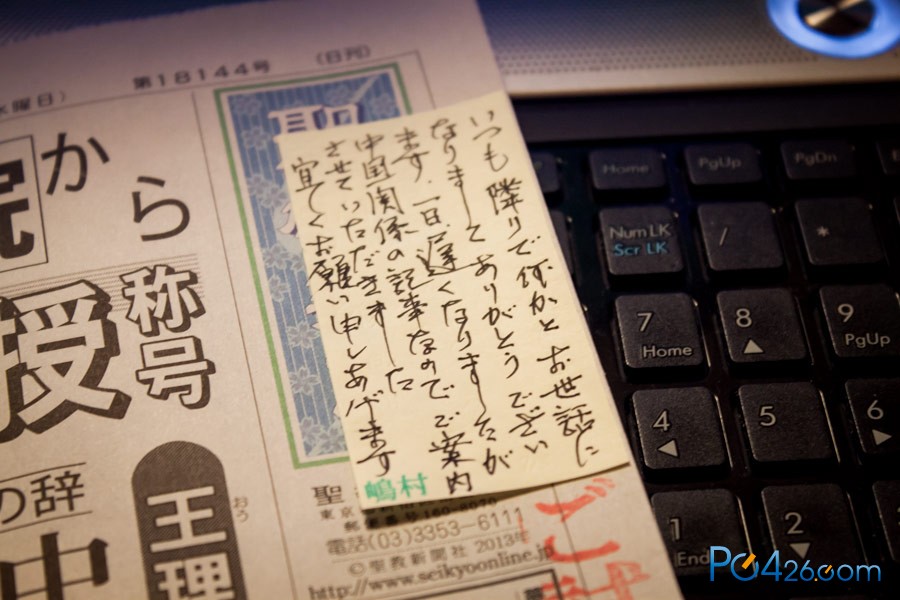 水曜日）
第18144号
（日刊）
から
称号
授
の辞
中
王理
おう
聖
いつも隣りで何かとお世話に
なりまして ありがとうござい
ます。一日遅くなりましたが
中国関係の記事なのでご案内
させていただきました
宜しくお願い申しあげます
嶋村
聖
東京
郵便番号160-8070
電話(03)3353-6111
©聖教新聞社 2013年
http://www.seikyoonline.jp
Home
PgUp
PgDn
Num LK
Scr LK
/
*
7
Home
8
9
PgUp
4
5
6
1
End
2
PG426.com